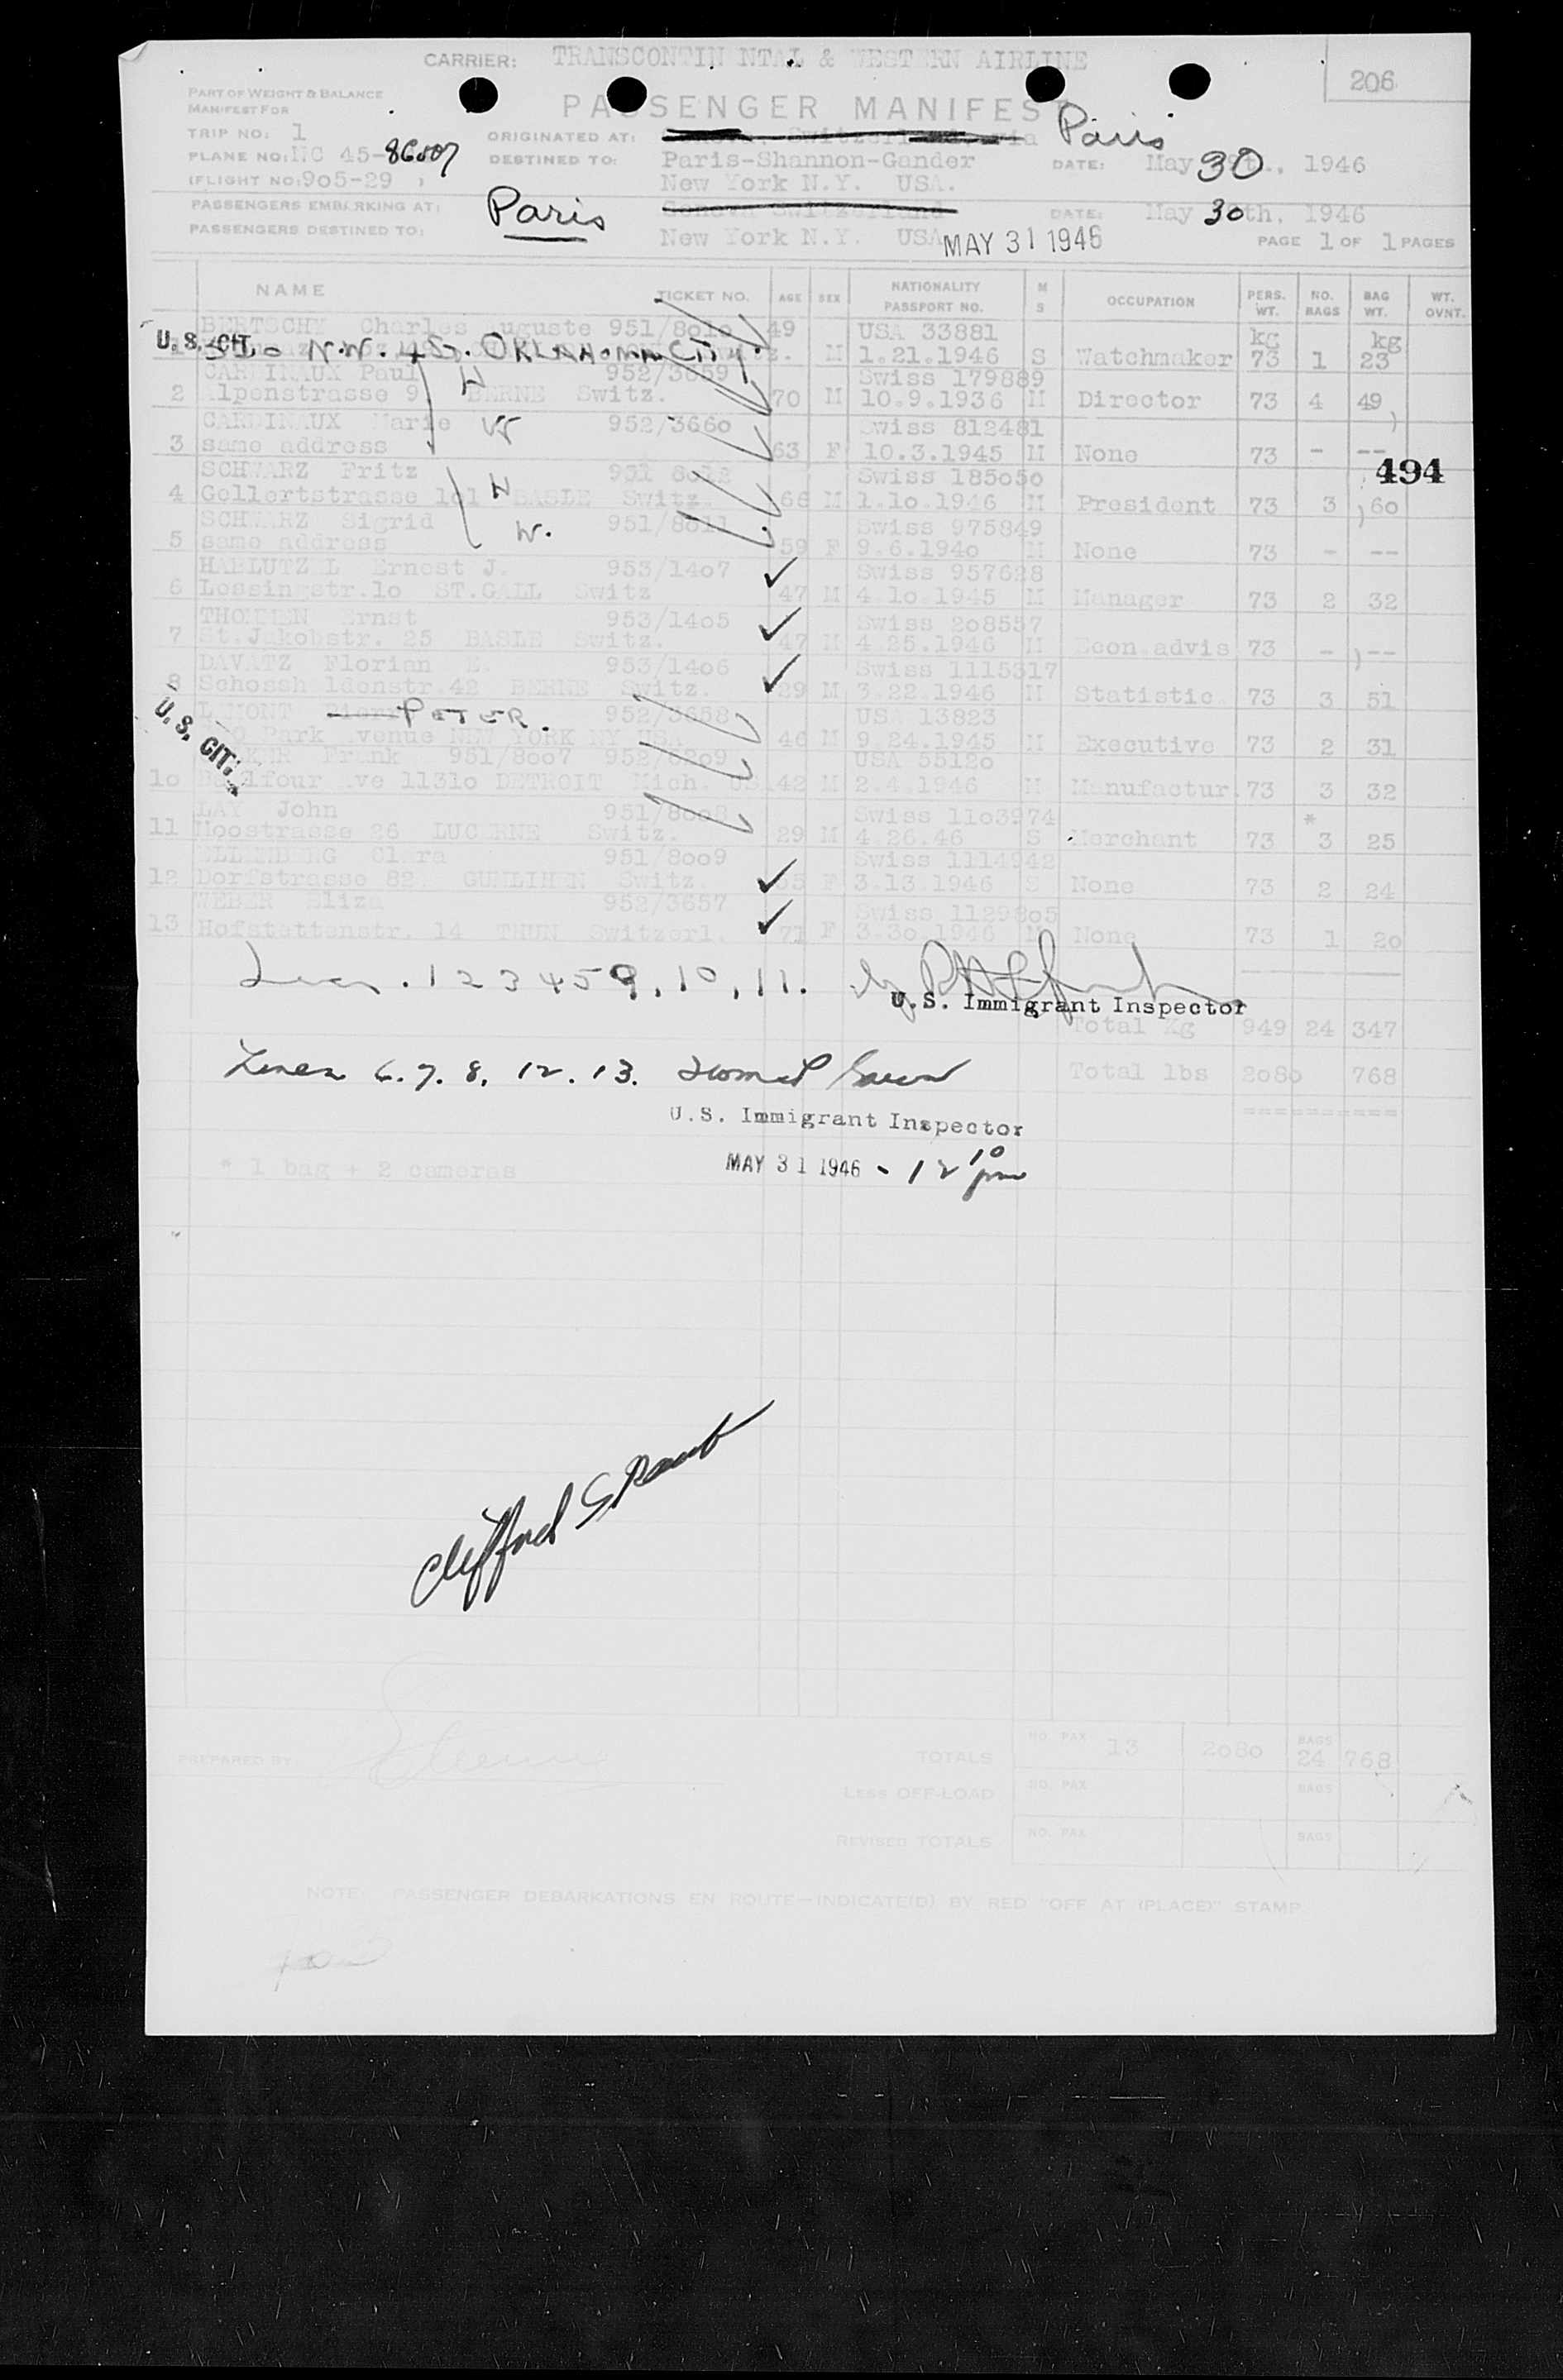 CARRIER: TRANSCONTIN NTAL & WESTERN AIRLINE
206
PART OF WEIGHT & BALANCE
MANIFEST FOR
PASSENGER MANIFEST
TRIP NO: 1
ORIGINATED AT: Paris
PLANE NO: NC 45-86507
DESTINED TO: Paris-Shannon-Gander DATE: May 30, 1946
(FLIGHT NO: 905-29 )
New York N.Y. USA.
PASSENGERS EMBARKING AT: Paris Geneva Switzerland DATE: May 30th, 1946
PASSENGERS DESTINED TO: New York N.Y. USA MAY 31 1946 PAGE 1 OF 1 PAGES
NAME TICKET NO. AGE SEX NATIONALITY PASSPORT NO. M S OCCUPATION PERS. WT. NO. BAGS BAG WT. WT. OVNT.
BERTSCHY Charles Auguste 951/8010 49 USA 33881 kg kg
U.S. CIT. N.W. 4 OKLAHOMA CITY. M 1.21.1946 S Watchmaker 73 1 23
CARDINAUX Paul W 952/3659 Swiss 179889
2 Alpenstrasse 9 BERNE Switz. 70 M 10.9.1936 M Director 73 4 49
CARDINAUX Marie W 952/3660 Swiss 812481
3 same address 63 F 10.3.1945 M None 73 - --
494
SCHWARZ Fritz W 951 8012 Swiss 185050
4 Gellertstrasse 101 BASLE Switz. 66 M 1.10.1946 M President 73 3 60
SCHWARZ Sigrid W. 951/8011 Swiss 975849
5 same address 59 F 9.6.1940 M None 73 - --
Ernest J. 953/1407 Swiss 957628
6 Lessingstr.10 ST.GALL Switz 47 M 4.10.1945 M Manager 73 2 32
THOMMEN Ernst 953/1405 Swiss 208557
7 St.Jakobstr. 25 BASLE Switz. 47 M 4.25.1946 M Econ.advis 73 - --
DAVATZ Florian E. 953/1406 Swiss 1115317
8 Schossh ldenstr.42 BERNE Switz. 29 M 3.22.1946 M Statistic. 73 3 51
PETER. 952/3658 USA 13823
U.S. CIT. Park Avenue NEW YORK NY USA 46 M 9.24.1945 M Executive 73 2 31
Frank 951/8007 952/6209 USA 55120
10 Ave 11310 DETROIT Mich. US 42 M 2.4.1946 M Manufactur. 73 3 32
LAY John 951/8008 Swiss 1103974 *
11 Moostrasse 26 LUCERNE Switz. 29 M 4.26.46 S Merchant 73 3 25
ELLENBERG Clara 951/8009 Swiss 1114942
12 Dorfstrasse 82 GUMLIHEN Switz. F 3.13.1946 S None 73 2 24
WEBER Eliza 952/3657 Swiss 1129805
13 Hofstettenstr. 14 THUN Switzerl. 71 F 3.30.1946 M None 73 1 20
1 2 3 4 5 9, 10, 11. by
U.S. Immigrant Inspector
Total Kg 949 24 347
Lines 6. 7. 8. 12. 13.
Total lbs 2080 768
U.S. Immigrant Inspector
MAY 31 1946 - 12 10 pm
* 1 bag + 2 cameras
Clifford
PREPARED BY:
TOTALS NO. PAX 13 2080 BAGS 24 768
LESS OFF-LOAD NO. PAX BAGS
REVISED TOTALS NO. PAX BAGS
NOTE: PASSENGER DEBARKATIONS EN ROUTE—INDICATE(D) BY RED "OFF AT (PLACE)" STAMP